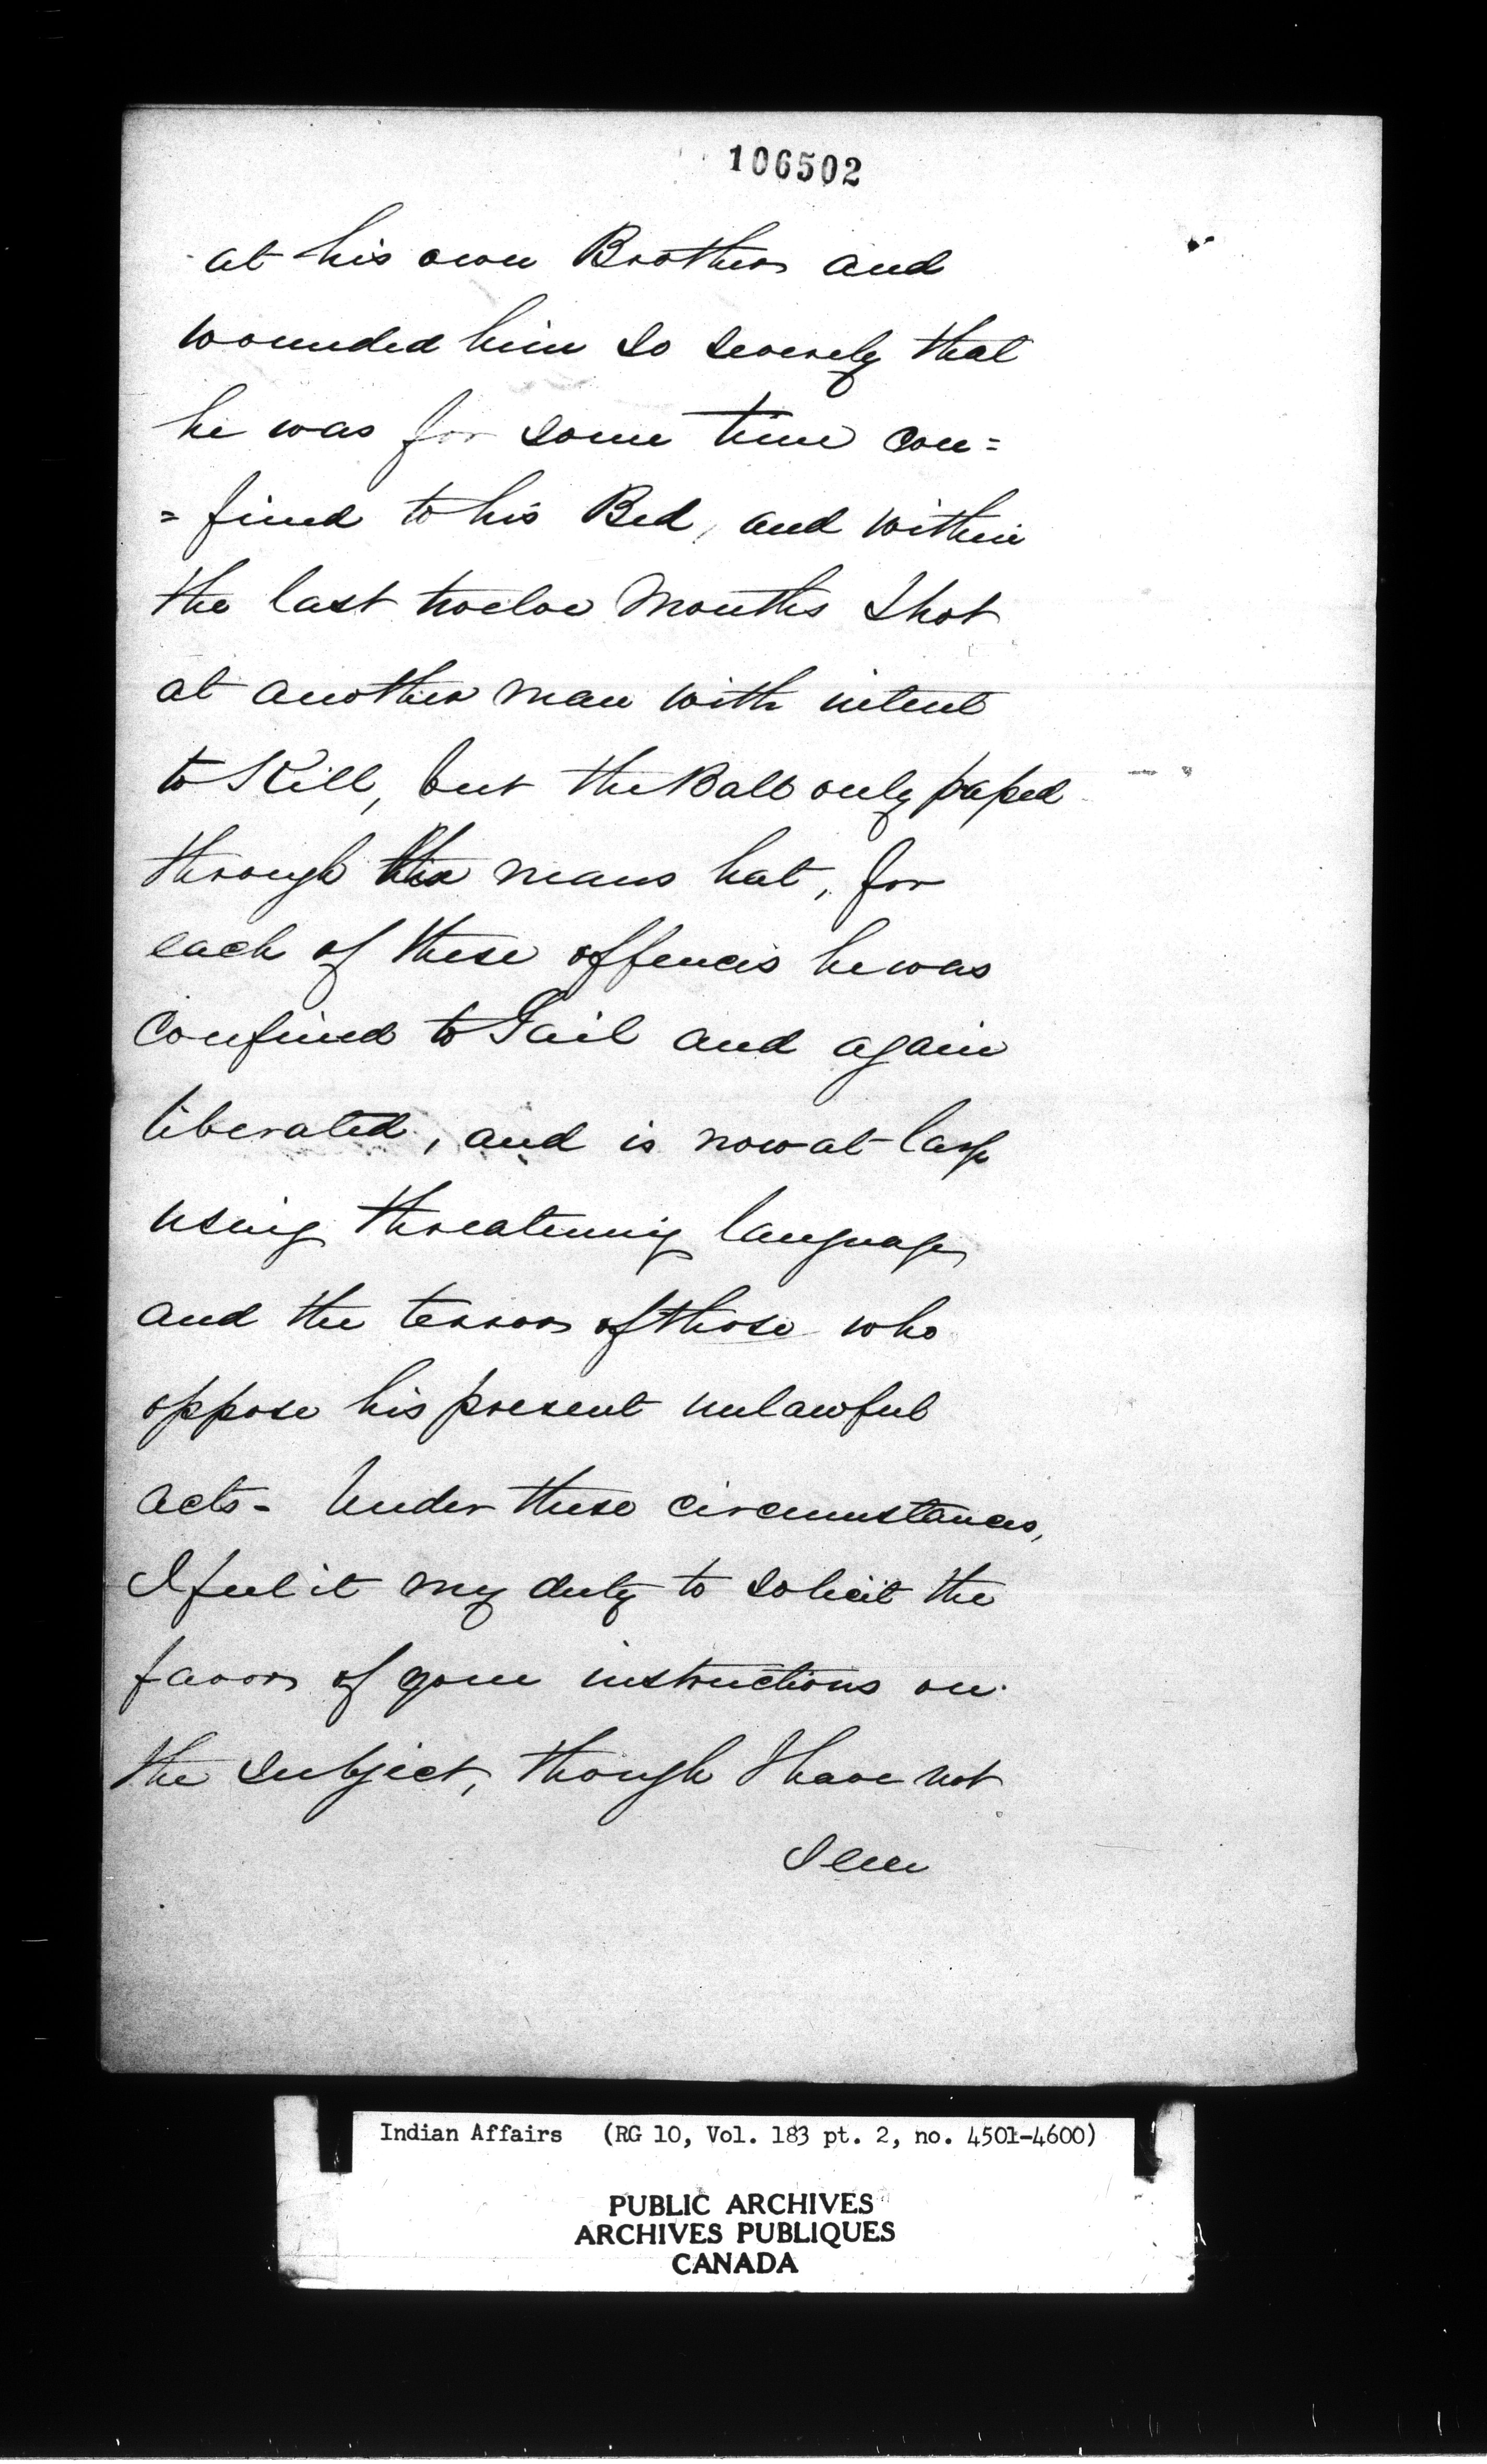 106502
at his own Brother and
wounded him so severely that
he was for some time con=
=fined to his Bed, and within
the last twelve Months Shot
at another man with intent
to Kill, but the Ball only passed
through the mans hat, for
each of these offences he was
Confined to Gail and again
liberated, and is now at large
using threatening language
and the terror of those who
oppose his present unlawful
acts - Under these circumstances,
I feel it my duty to solicit the
favor of your instructions on
the subject, though I have not
Indian Affairs (RG 10, Vol. 183 pt. 2, no. 4501-4600)
PUBLIC ARCHIVES
ARCHIVES PUBLIQUES
CANADA